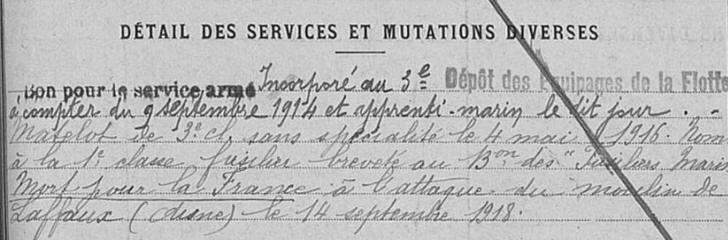 DÉTAIL DES SERVICES ET MUTATIONS DIVERSES
Bon pour le service armé Incorporé au 3e Dépôt des Équipages de la Flotte
à compter du 9 septembre 1914 et apprenti-marin le dit jour. -
Matelot de 3e cl. sans spécialité le 4 mai 1916. Nom
à la 1e classe fusilier breveté au Bon des "Fusiliers Marin
Mort pour la France à l'attaque du moulin de
Laffaux (Aisne) le 14 septembre 1918.